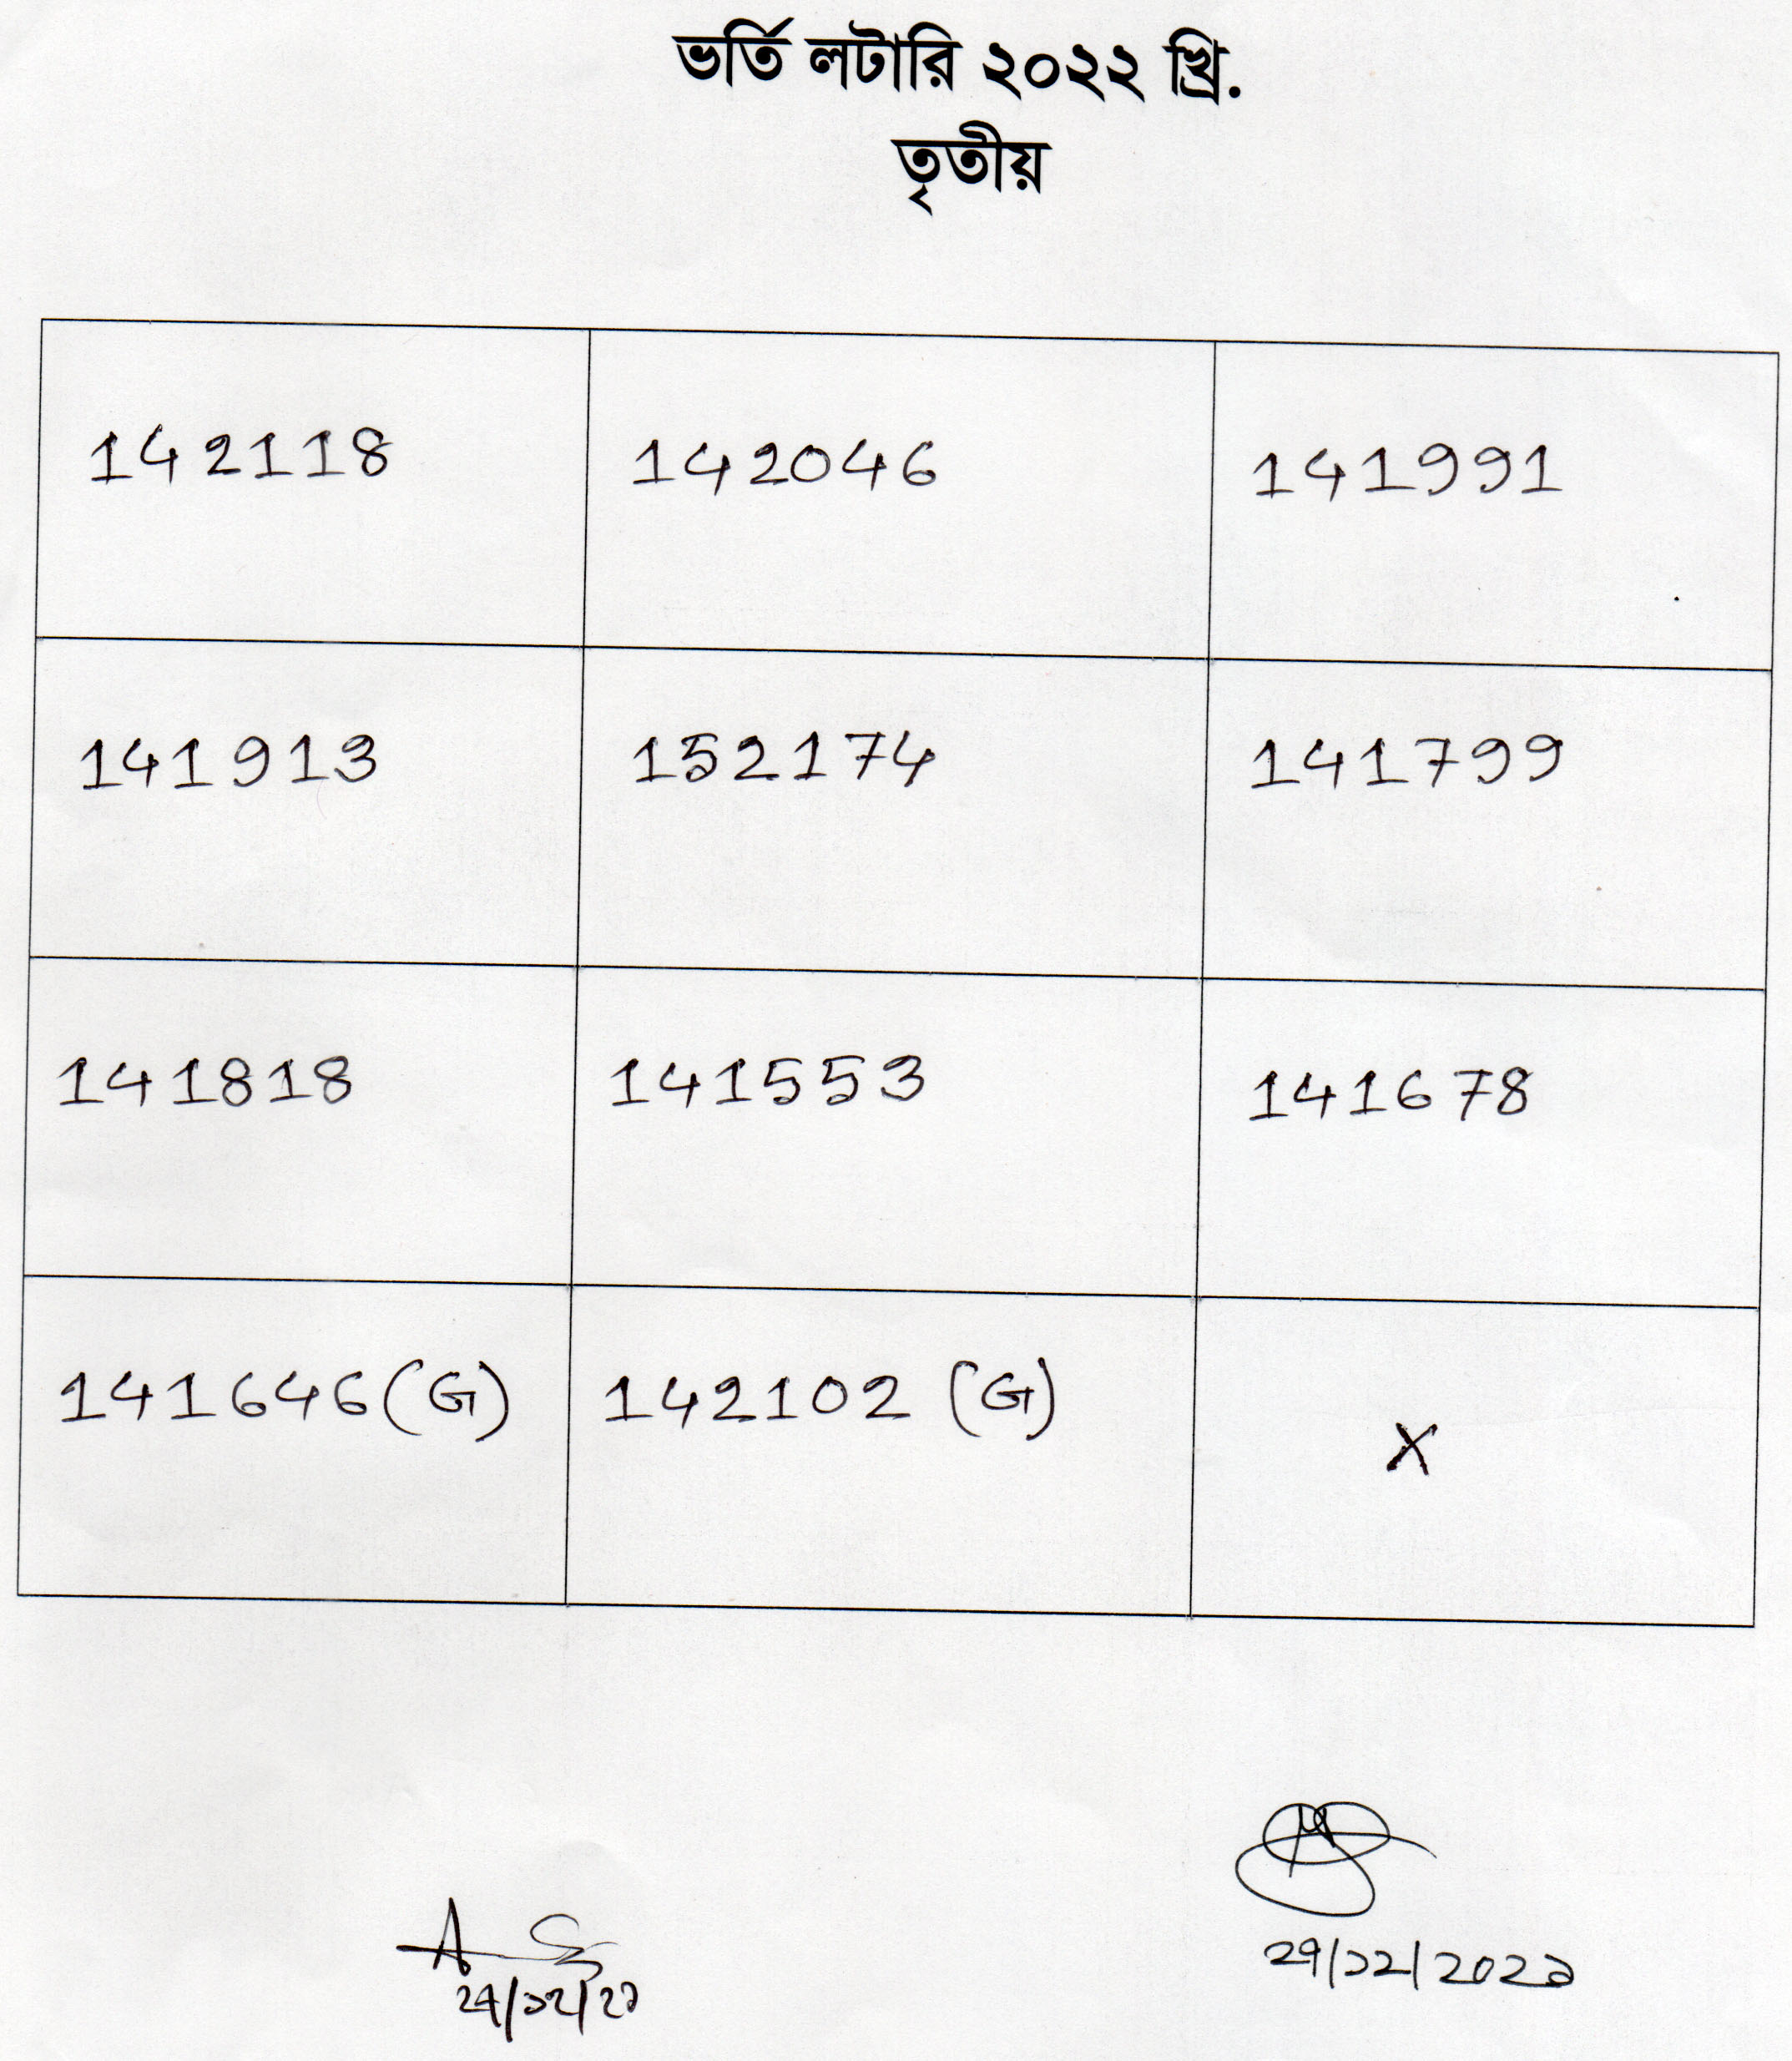 ভর্তি লটারি ২০২২ খ্রি.
তৃতীয়
142118 142046 141991
141913 152174 141799
141818 141553 141678
141646(G) 142102 (G) X
২৭/১২/২০২১
২৭/১২/২১